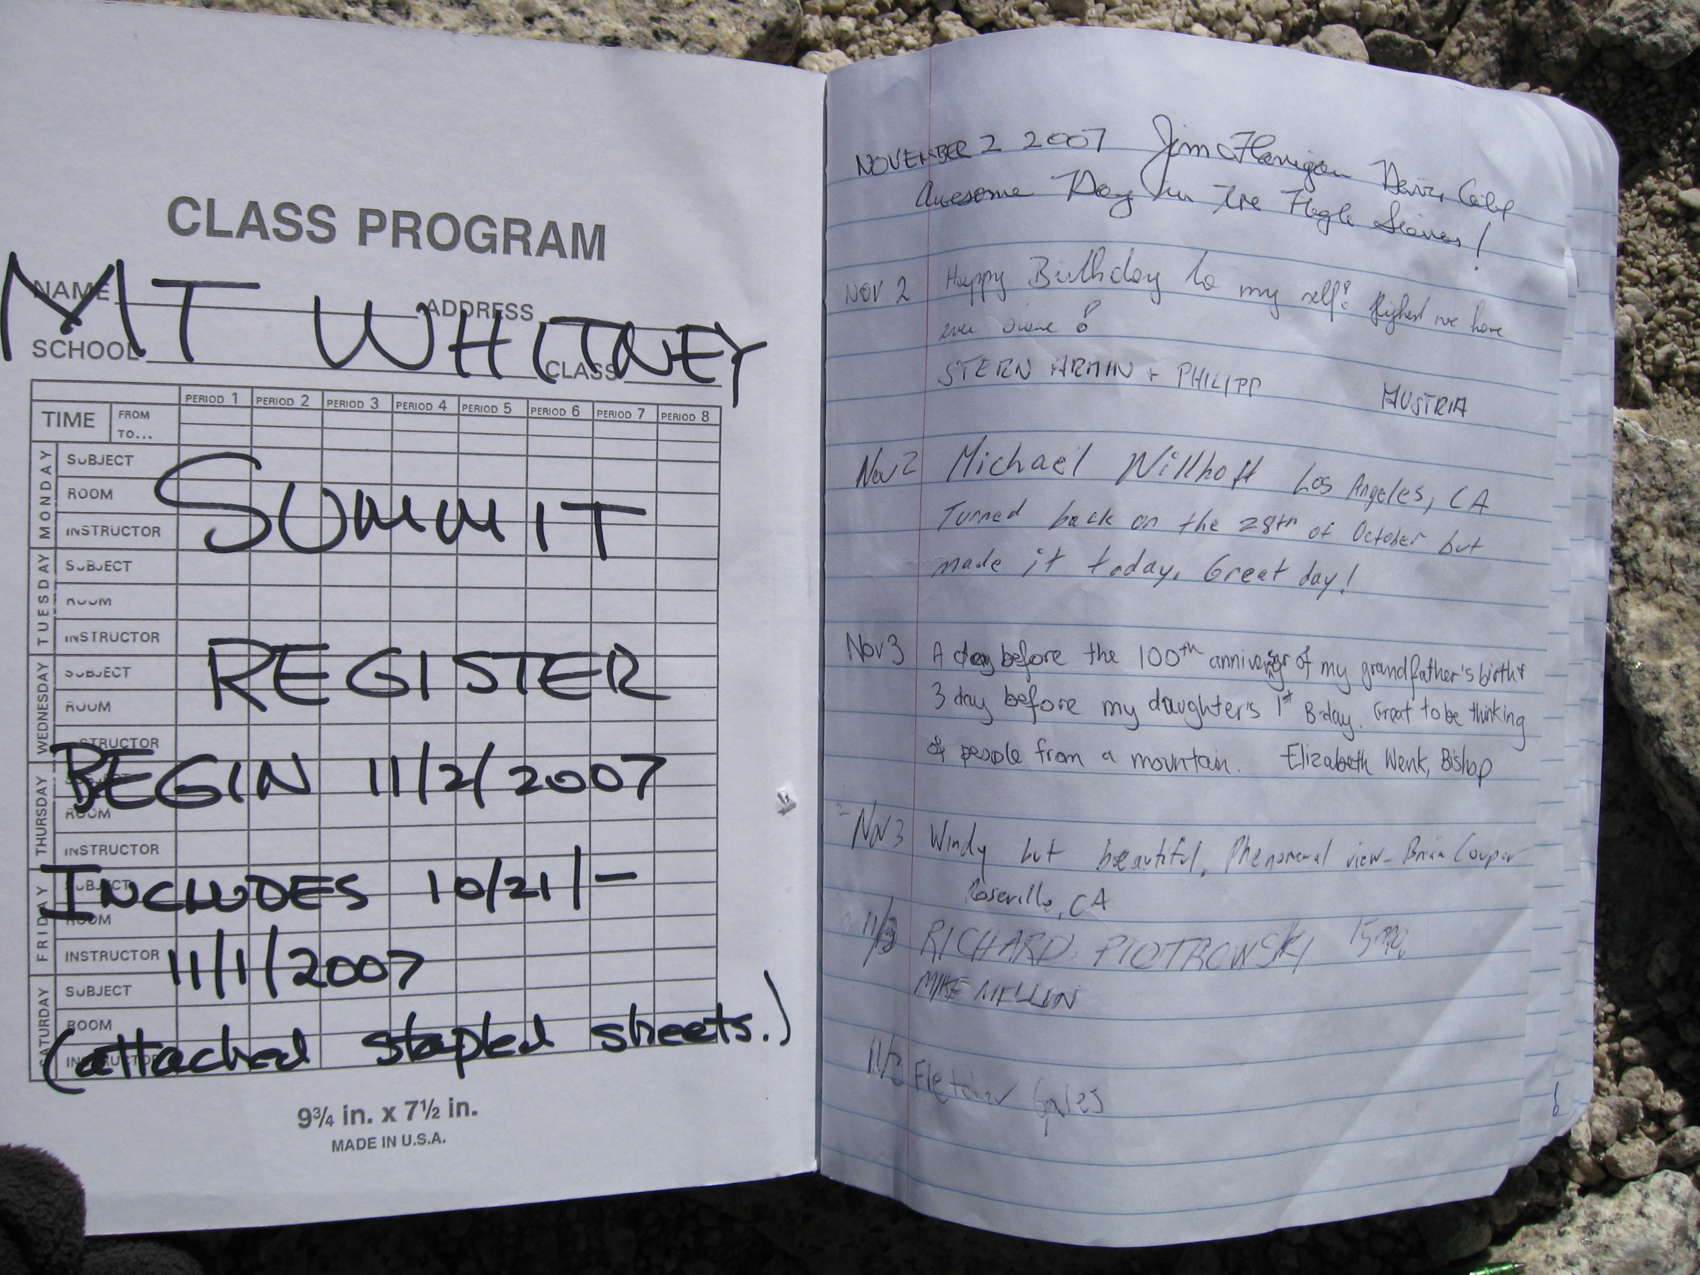 CLASS PROGRAM
NAME
ADDRESS
SCHOOL
CLASS
MT WHITNEY
PERIOD 1 PERIOD 2 PERIOD 3 PERIOD 4 PERIOD 5 PERIOD 6 PERIOD 7 PERIOD 8
TIME
FROM
TO...
MONDAY
SUBJECT
ROOM
INSTRUCTOR
TUESDAY
SUBJECT
ROOM
INSTRUCTOR
WEDNESDAY
SUBJECT
ROOM
INSTRUCTOR
THURSDAY
SUBJECT
ROOM
INSTRUCTOR
FRIDAY
SUBJECT
ROOM
INSTRUCTOR
SATURDAY
SUBJECT
ROOM
INSTRUCTOR
SUMMIT
REGISTER
BEGIN 11/2/2007
INCLUDES 10/21/-
11/1/2007
(attached stapled sheets.)
9¾ in. x 7½ in.
MADE IN U.S.A.
NOVEMBER 2 2007 Jim Flanigan Calif
Awesome Day In The
NOV 2 Happy Birthday to my self! Highest we have
ever
STERN ARMIN + PHILIPP AUSTRIA
Nov 2 Michael Willhoft Los Angeles, CA
Turned back on the 28th of October but
made it today. Great day!
Nov 3 A day before the 100th of my grandfather's birth &
3 day before my daughter's 1st B-day. Great to be thinking
of people from a mountain. Elizabeth Wenk, Bishop
Nov 3 Windy but beautiful, Phenomenal view - Brian Couper
Roseville, CA
11/3 RICHARD PIOTROWSKI
MIKE
11/3 Fletcher